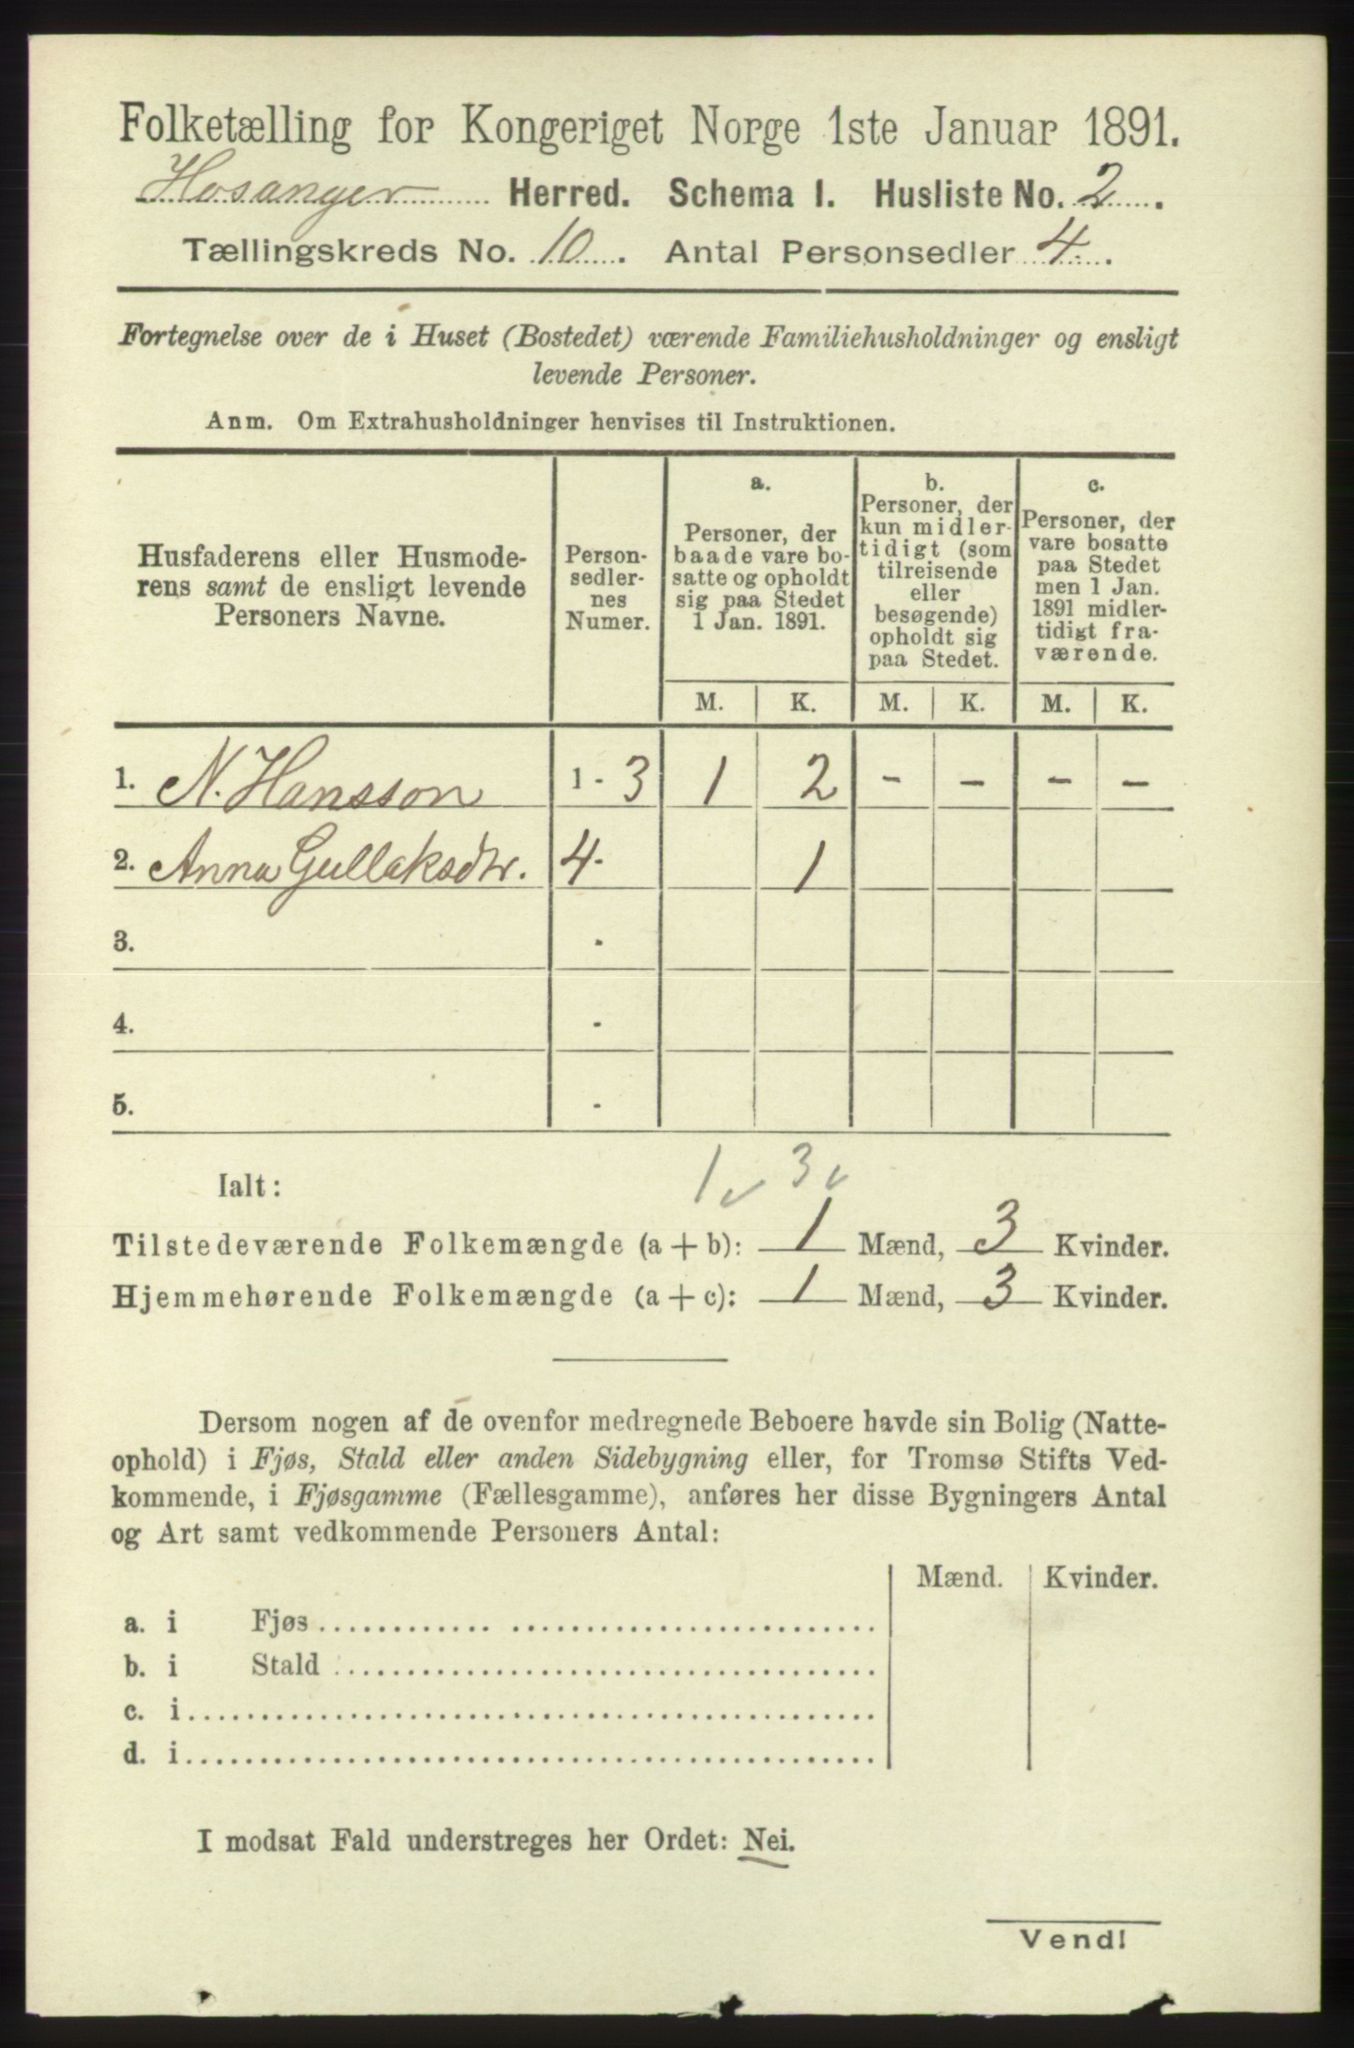 Folketælling for Kongeriget Norge 1ste Januar 1891.
Hosanger Herred. Schema I. Husliste No. 2.
Tællingskreds No. 10. Antal Personsedler 4.
Fortegnelse over de i Huset (Bostedet) værende Familiehusholdninger og ensligt
levende Personer.
Anm. Om Extrahusholdninger henvises til Instruktionen.
Husfaderens eller Husmode-
rens samt de ensligt levende
Personers Navne.
Person-
sedler-
nes
Numer.
a.
Personer, der
baade vare bo-
satte og opholdt
sig paa Stedet
1 Jan. 1891.
b.
Personer, der
kun midler-
tidigt (som
tilreisende
eller
besøgende)
opholdt sig
paa Stedet.
c.
Personer, der
vare bosatte
paa Stedet
men 1 Jan.
1891 midler-
tidigt fra-
værende.
M. K. M. K. M. K.
1. N. Hansson 1 - 3 1 2 - - - -
2. Anna Gullaksdtr. 4- 1
3. -
4. -
5. -
1 3
Ialt:
Tilstedeværende Folkemængde (a + b): 1 Mænd, 3 Kvinder.
Hjemmehørende Folkemængde (a + c): 1 Mænd, 3 Kvinder.
Dersom nogen af de ovenfor medregnede Beboere havde sin Bolig (Natte-
ophold) i Fjøs, Stald eller anden Sidebygning eller, for Tromsø Stifts Ved-
kommende, i Fjøsgamme (Fællesgamme), anføres her disse Bygningers Antal
og Art samt vedkommende Personers Antal:
Mænd. Kvinder.
a. i Fjøs
b. i Stald
c. i
d. i
I modsat Fald understreges her Ordet: Nei.
Vend!